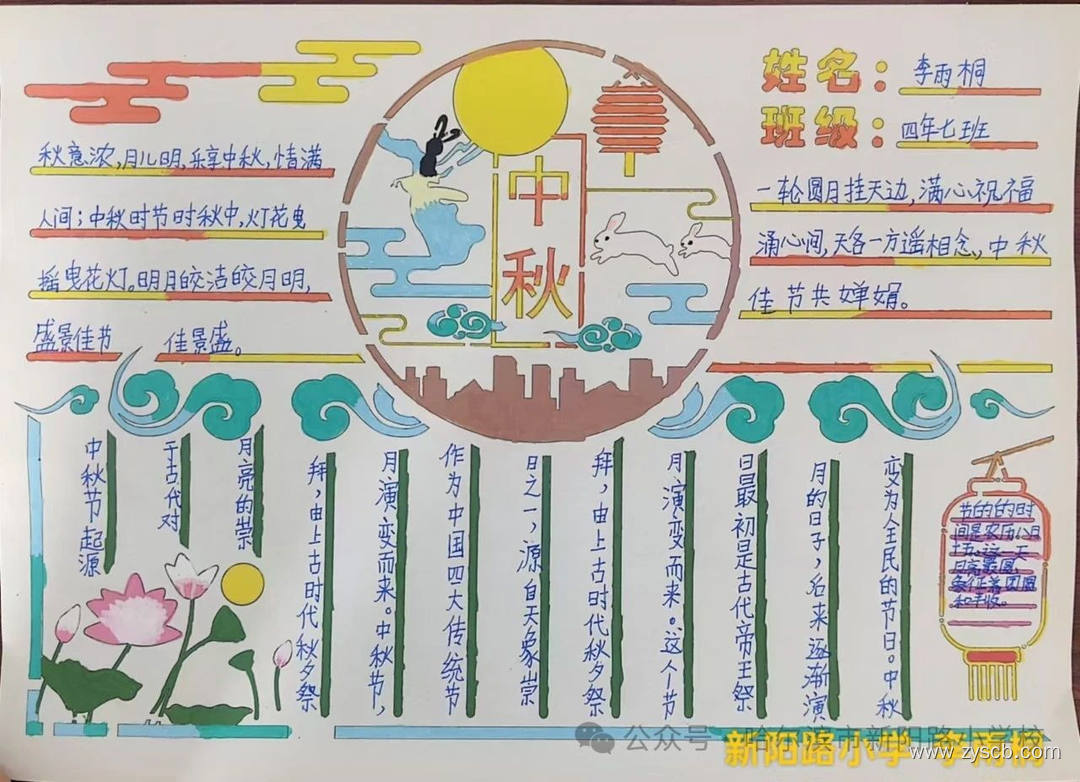 姓名：李雨桐
班级：四年七班
秋意浓，月儿明，乐享中秋，情满
人间；中秋时节时秋中，灯花曳
摇曳花灯。明月皎洁皎月明，
盛景佳节 佳景盛。
中秋
一轮圆月挂天边，满心祝福
涌心间，天各一方遥相念，中秋
佳节共婵娟。
中秋节起源
于古代对
月亮的崇
拜，由上古时代秋夕祭
月演变而来。中秋节，
作为中国四大传统节
日之一，源自天象崇
拜，由上古时代秋夕祭
月演变而来。这个节
日最初是古代帝王祭
月的日子，后来逐渐演
变为全民的节日。中秋
节的的时
间是农历八月
十五。这一天
月亮最圆
象征着团圆
和丰收。
公众号 · 哈尔滨市新阳路小学校
新阳路小学 李雨桐
www.zyscb.com